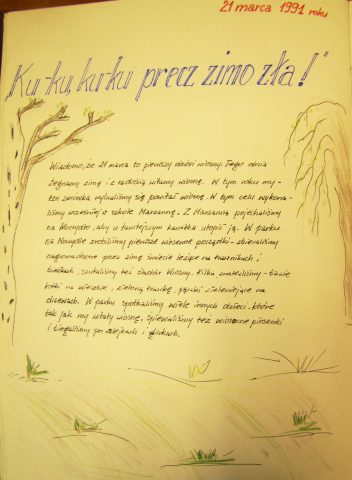 21 marca 1991 roku
„Ku-ku, ku-ku precz zimo zła!”
Wiadomo, że 21 marca to pierwszy dzień wiosny. Tego dnia
żegnamy zimę i z radością witamy wiosnę. W tym roku my-
też wybraliśmy się powitać wiosnę. W tym celu wykona-
liśmy wcześniej w szkole Marzannę. Z Marzanną pojechaliśmy
na aby w tamtejszym utopić ją. W parku
na zrobiliśmy pierwsze wiosenne porządki - zbieraliśmy
nagromadzone przez zimę śmiecie leżące na trawnikach i
ścieżkach, szukaliśmy też śladów wiosny. Kilka znaleźliśmy - bazie
kotki na wierzbie, zieloną trawkę, pączki zieleniejące na
drzewach. W parku spotkaliśmy wiele innych dzieci, które
tak jak my witały wiosnę, śpiewaliśmy też wiosenne piosenki
i biegaliśmy po alejkach i górkach.